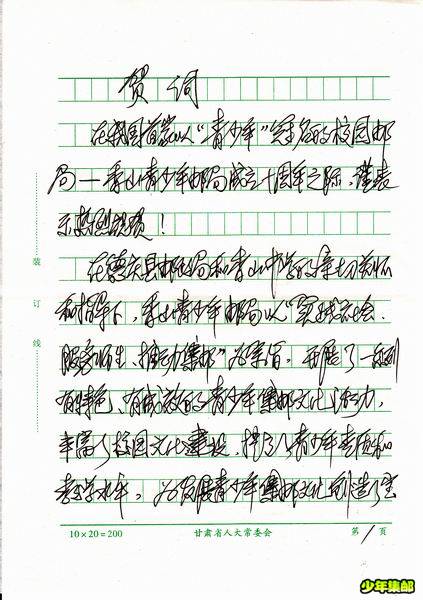 贺词
在我国首家以“青少年”冠名的校园邮
局——香山青少年邮局成立十周年之际,谨表
示热烈祝贺!
在德庆县邮政局和香山中学的亲切关怀
和指导下,香山青少年邮局以“实践社会、
服务师生、推动集邮”为宗旨,开展了一系列
有特色、有成效的青少年集邮文化活动,
丰富了校园文化建设,提高了青少年素质和
教学水平,为发展青少年集邮文化创造了宝
装
订
线
10×20=200 甘肃省人大常委会 第1页
少年集邮